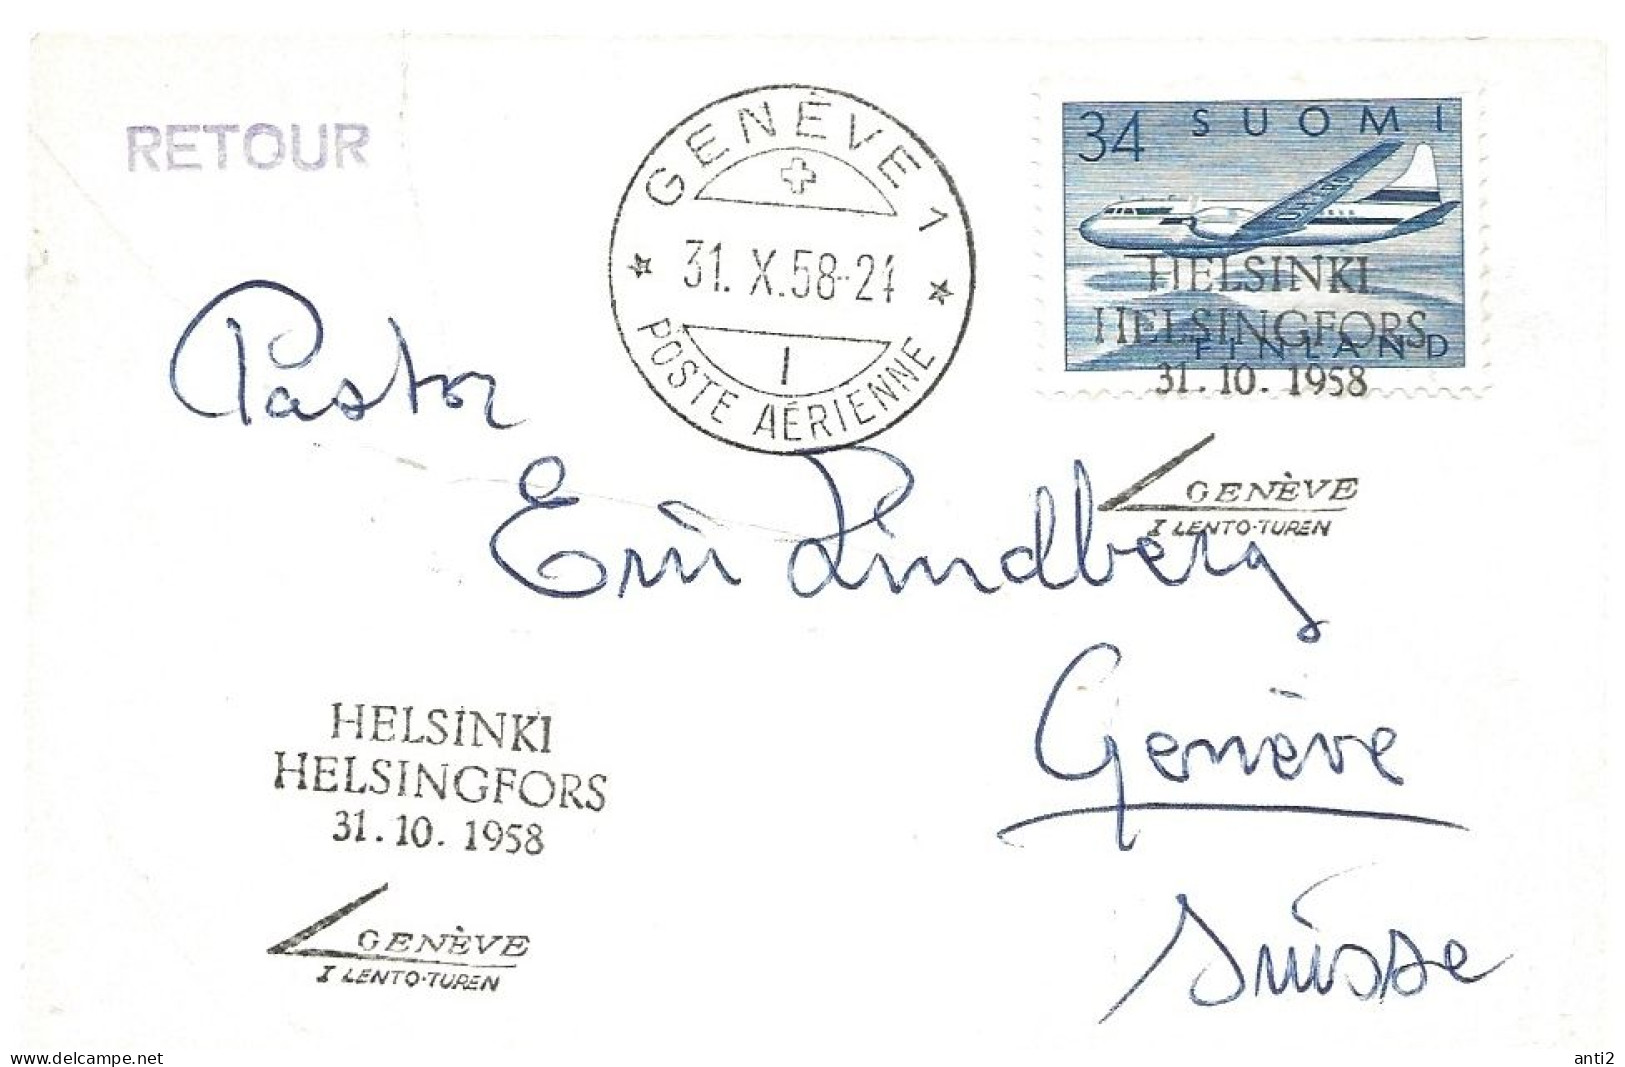 RETOUR
GENÈVE 1
31. X. 58-24
POSTE AÉRIENNE
1
34 SUOMI
FINLAND
HELSINKI
HELSINGFORS
31.10.1958
GENÈVE
I LENTO-TUREN
Pastor
Eric Lindberg
Genève
Suisse
HELSINKI
HELSINGFORS
31.10.1958
GENÈVE
I LENTO-TUREN
www.delcampe.net
anti2